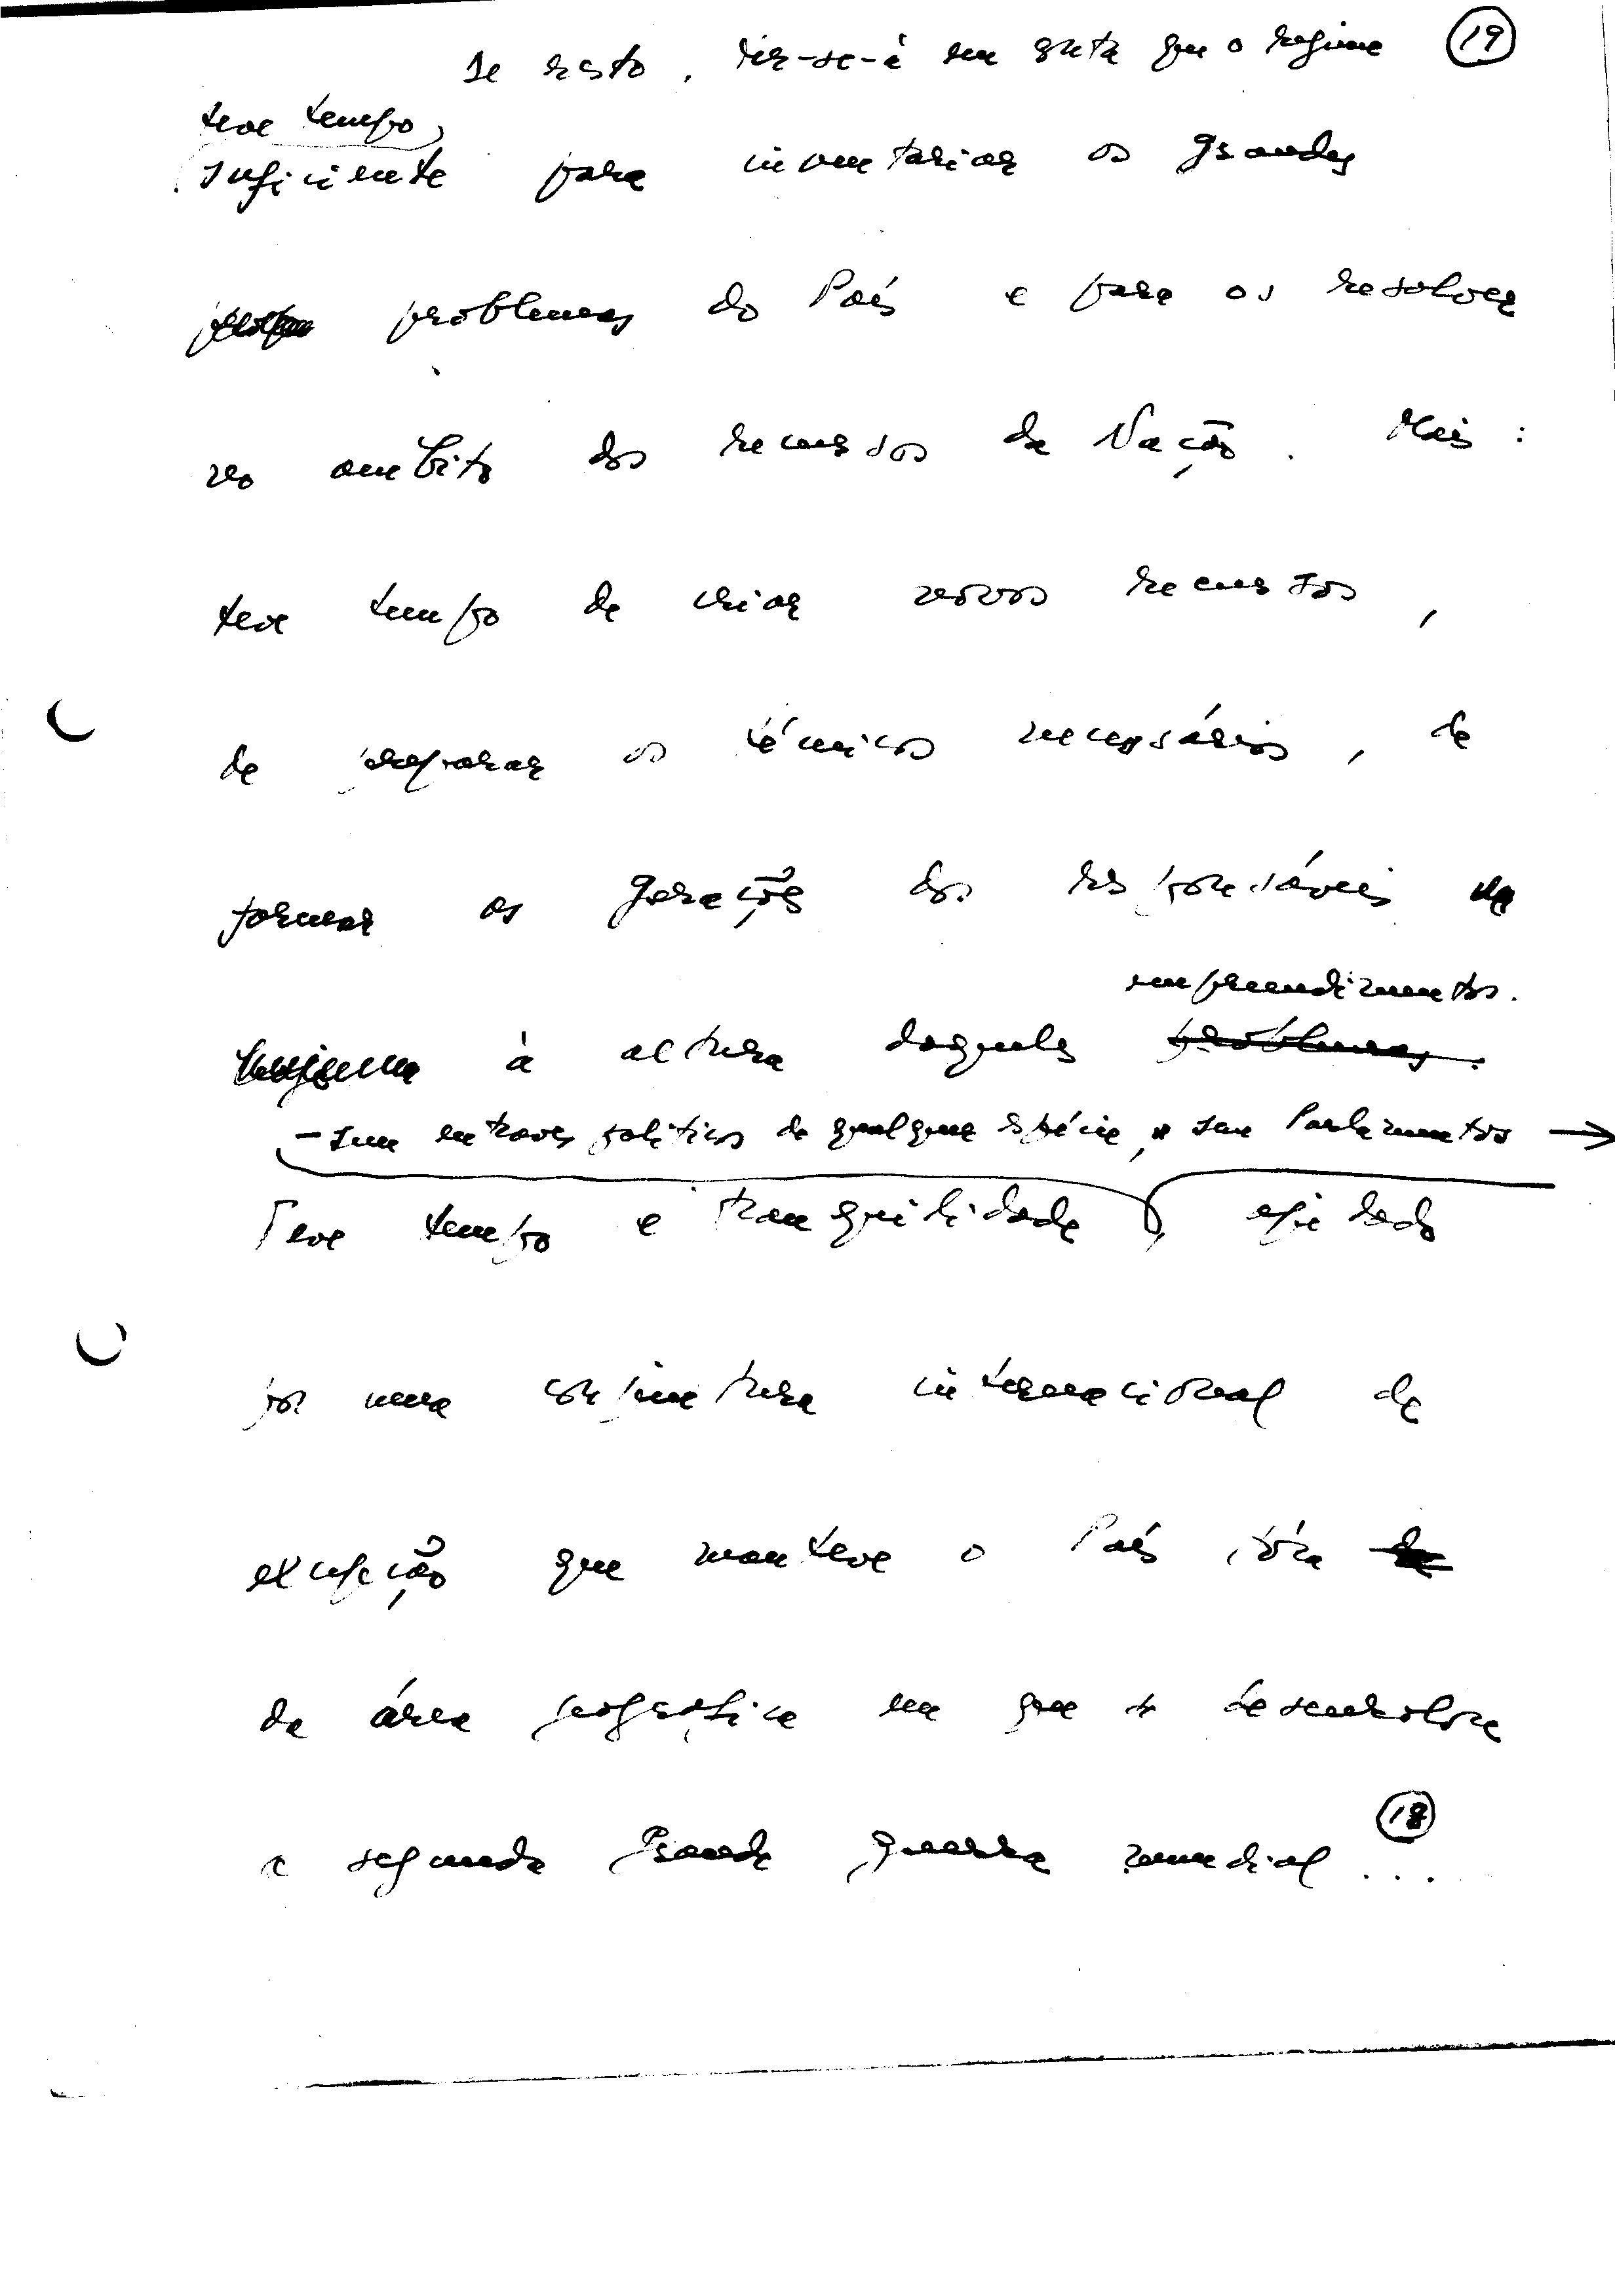 De resto, dir-se-á em suma que o regime (19)
teve tempo
suficiente para inventariar os grandes
problemas do País e para os resolver
no ambito dos recursos da Nação. Mais:
teve tempo de criar novos recursos,
de preparar os técnicos necessários, de
formar as gerações dos responsáveis
empreendimentos.
à altura daqueles problemas.
- sem entraves políticos de qualquer espécie, sem Parlamentos →
Teve tempo e tranquilidade, ajudado
por uma conjuntura internacional de
excepção que manteve o País fóra de
da área geográfica em que se desenrolou
a segunda grande guerra mundial (18) ...